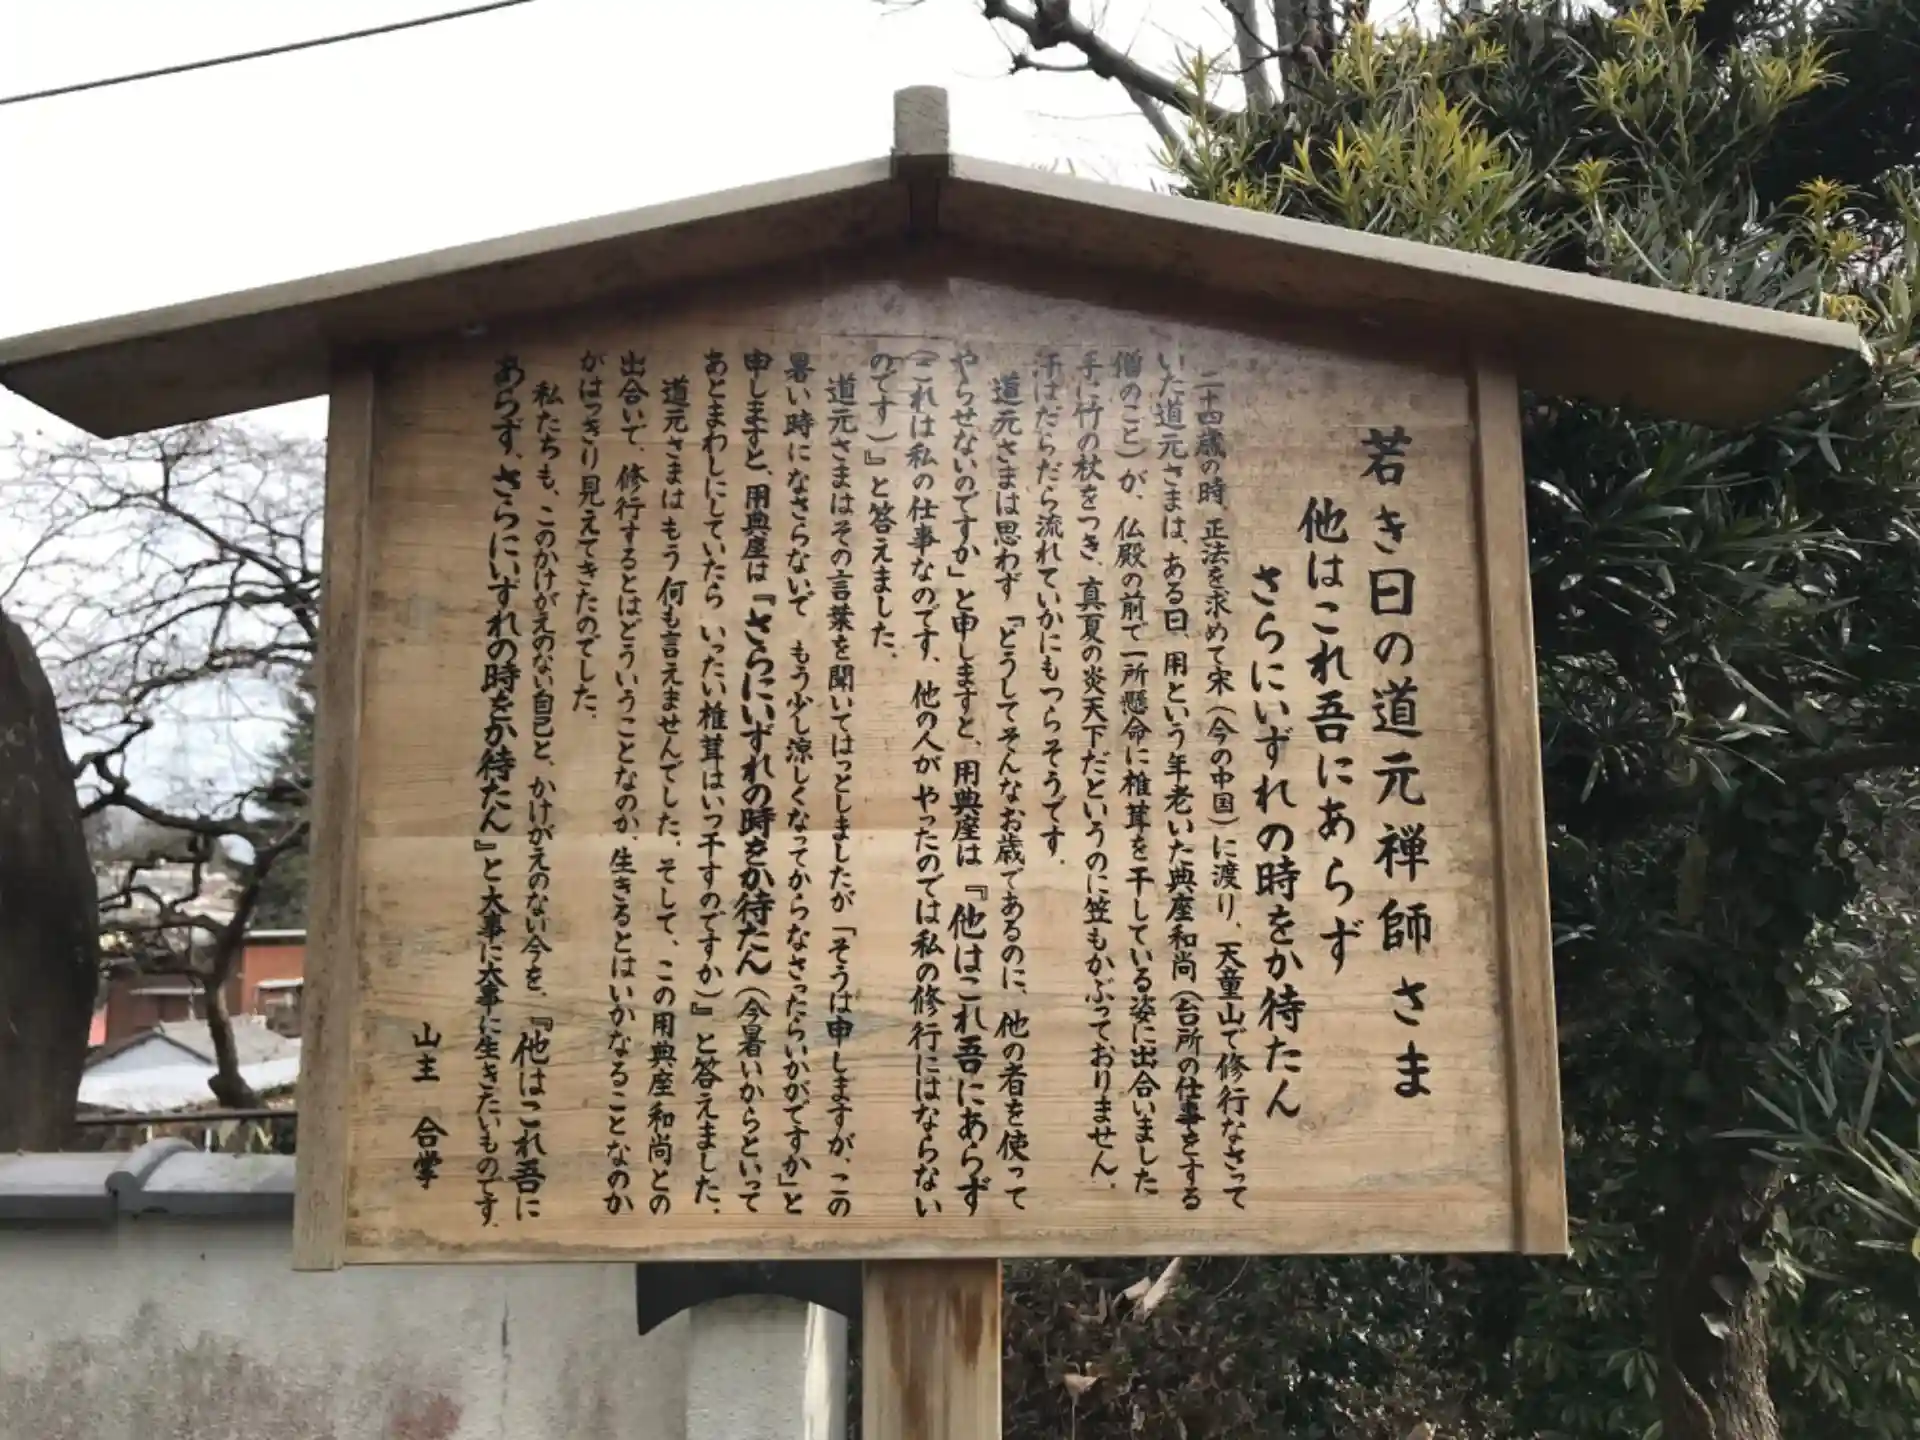 若き日の道元禅師さま
他はこれ吾にあらず
さらにいずれの時をか待たん
二十四歳の時、正法を求めて宋(今の中国)に渡り、天童山で修行なさって
いた道元さまは、ある日、用という年老いた典座和尚(台所の仕事をする
僧のこと)が、仏殿の前で一所懸命に椎茸を干している姿に出合いました
手に竹の杖をつき、真夏の炎天下だというのに笠もかぶっておりません、
汗はだらだら流れていかにもつらそうです。
道元さまは思わず「どうしてそんなお歳であるのに、他の者を使って
やらせないのですか」と申しますと、用典座は『他はこれ吾にあらず
(これは私の仕事なのです、他の人がやったのでは私の修行にはならない
のです)』と答えました。
道元さまはその言葉を聞いてはっとしましたが「そうは申しますが、この
暑い時になさらないで もう少し涼しくなってからなさったらいかがですか」と
申しますと、用典座は『さらにいずれの時をか待たん(今暑いからといって
あとまわしにしていたら いったい椎茸はいつ干すのですか)』と答えました、
道元さまはもう何も言えませんでした、そして、この用典座和尚との
出合いで、修行するとはどういうことなのか、生きるとはいかなることなのか
がはっきり見えてきたのでした、
私たちも、このかけがえのない自己と、かけがえのない今を、『他はこれ吾に
あらず、さらにいずれの時をか待たん』と大事に大事に生きたいものです、
山主 合掌